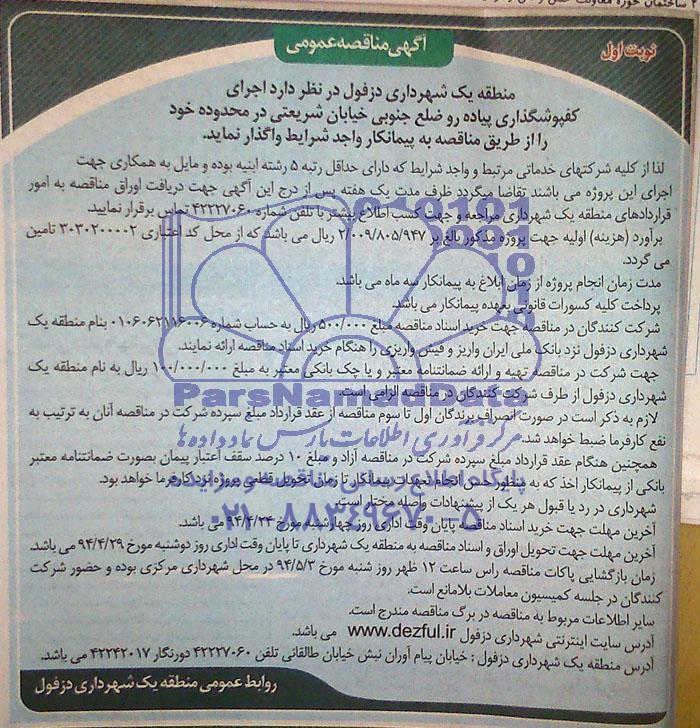 ۲ ساختمان حوزه معاونت
آگهی مناقصه عمومی
نوبت اول
منطقه یک شهرداری دزفول در نظر دارد اجرای
کفپوشگذاری پیاده رو ضلع جنوبی خیابان شریعتی در محدوده خود
را از طریق مناقصه به پیمانکار واجد شرایط واگذار نماید.
لذا از کلیه شرکتهای خدماتی مرتبط و واجد شرایط که دارای حداقل رتبه ۵ رشته ابنیه بوده و مایل به همکاری جهت
اجرای این پروژه می باشند تقاضا میگردد ظرف مدت یک هفته پس از درج این آگهی جهت دریافت اوراق مناقصه به امور
قراردادهای منطقه یک شهرداری مراجعه و جهت کسب اطلاع بیشتر با تلفن شماره ۴۲۲۲۷۰۶۰ تماس برقرار نمایید.
برآورد (هزینه) اولیه جهت پروژه مذکور بالغ بر ۲/۰۰۹/۸۰۵/۹۴۷ ریال می باشد که از محل کد اعتباری ۳۰۳۰۲۰۰۰۰۲ تامین
می گردد.
مدت زمان انجام پروژه از زمان ابلاغ به پیمانکار سه ماه می باشد.
پرداخت کلیه کسورات قانونی بعهده پیمانکار می باشد.
شرکت کنندگان در مناقصه جهت خرید اسناد مناقصه مبلغ ۵۰۰/۰۰۰ ریال به حساب شماره ۰۱۰۶۰۶۲۱۱۶۰۰۶ بنام منطقه یک
شهرداری دزفول نزد بانک ملی ایران واریز و فیش واریزی را هنگام خرید اسناد مناقصه ارائه نمایند.
جهت شرکت در مناقصه تهیه و ارائه ضمانتنامه معتبر و یا چک بانکی معتبر به مبلغ ۱۰۰/۰۰۰/۰۰۰ ریال به نام منطقه یک
شهرداری دزفول از طرف شرکت کنندگان در مناقصه الزامی است.
لازم به ذکر است در صورت انصراف برندگان اول تا سوم مناقصه از عقد قرارداد مبلغ سپرده شرکت در مناقصه آنان به ترتیب به
نفع کارفرما ضبط خواهد شد.
همچنین هنگام عقد قرارداد مبلغ سپرده شرکت در مناقصه آزاد و مبلغ ۱۰ درصد سقف اعتبار پیمان بصورت ضمانتنامه معتبر
بانکی از پیمانکار اخذ که به منظور حسن انجام تعهدات پیمانکار تا زمان تحویل قطعی پروژه نزد کارفرما خواهد بود.
شهرداری در رد یا قبول هر یک از پیشنهادات واصله مختار است.
آخرین مهلت جهت خرید اسناد مناقصه پایان وقت اداری روز چهارشنبه مورخ ۹۴/۴/۲۴ می باشد.
آخرین مهلت جهت تحویل اوراق و اسناد مناقصه به منطقه یک شهرداری تا پایان وقت اداری روز دوشنبه مورخ ۹۴/۴/۲۹ می باشد.
زمان بازگشایی پاکات مناقصه راس ساعت ۱۲ ظهر روز شنبه مورخ ۹۴/۵/۳ در محل شهرداری مرکزی بوده و حضور شرکت
کنندگان در جلسه کمیسیون معاملات بلامانع است.
سایر اطلاعات مربوط به مناقصه در برگ مناقصه مندرج است.
آدرس سایت اینترنتی شهرداری دزفول www.dezful.ir می باشد.
آدرس منطقه یک شهرداری دزفول : خیابان پیام آوران نبش خیابان طالقانی تلفن ۴۲۲۲۷۰۶۰ دورنگار ۴۲۲۴۲۰۱۷ می باشد.
روابط عمومی منطقه یک شهرداری دزفول
ParsNamadData
مرکز فرآوری اطلاعات پارس نماد داده ها
پایگاه اطلاع رسانی مناقصه و مزایده
۰۲۱-۸۸۳۴۹۶۷۰-۵